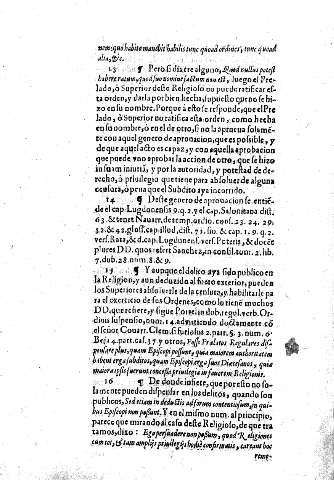 nem; quo habito manebit habilis tunc quoad ordines, tunc quoad
alia, &c.
13 ¶ Pero si dixere alguno, Quod nullus potest
habere ratum, quod suo nomine factum non est, luego el Pre
lado, ò Superior deste Religioso no puede ratificar es
ta orden, y darla por bien hecha, supuesto que no se hi
zo en su nombre. Porque à esto se responde, que el Pre
lado, ò Superior no ratifica esta orden, como hecha
en su nombre, ò en el de otro, sino la aprueua solamē
te con aquel genero de aprouacion, que es possible, y
de que aquel acto es capaz, y con aquella aprobacion
que puede vno aprobar la accion de otro, que se hizo
in suam iniuriā, y por la autoridad, y potestad de de
recho, ò priuilegio que tiene para absoluer de alguna
censura, ò pena que el Subdito aya incurrido.
14 ¶ Deste genero de aprouacion se entiē
de el cap. Lugdunensis 9. q. 2. y el cap. Salonitana dist.
63. & tenet Nauar. de temp. ordin. cons. 23. 24. 29.
32. & 42. glos. cap. illud, dist. 71. sic & cap. 1. 9. q. 2.
vers. Rata, & d. cap. Lugdunens. vers. Petenti, & docēt
plures DD. quos refert Sanchez, in consil. tom. 2. lib.
7. dub. 28. num. 8. & 9.
15 ¶ Y aunque el delito aya sido publico en
la Religion, y aun deduzido al fuero exterior, pueden
los Superiores absoluerle de la censura, y habilitarle pa
ra el exercicio de sus Ordenes, como lo tienē muchos
DD. que refiere, y sigue Portel in dub. regul. verb. Or
dinis suspensio, num. 14. aduirtiendo doctamente cō
el señor Couar. Clem. si furiosus 2. part. §. 3. num. 6.
Beja 4. part. cas. 37. y otros, Posse Prælatos Regulares dis
pensare plus, quam Episcopi possunt, quia maiorem authoritatem
habent erga subditos, quam Episcopi erga suos Diœcesanos, quia
maiora ipsis fuerunt concessa priuilegia in fauorem Religionis.
16 ¶ De donde infiere, que por esto no so-
lamente pueden dispensar en los delitos, quando son
publicos, Sed etiam in deductis ad forum contentiosum, in qui-
bus Episcopi non possunt. Y en el mismo num. al principio,
parece que mirando al caso deste Religioso, de que tra
tamos, dixo: Ego persuadere non possum, quod Religiones
cum tot, & tam amplis priuilegijs hodie confirmatis, careant hoc
reme-